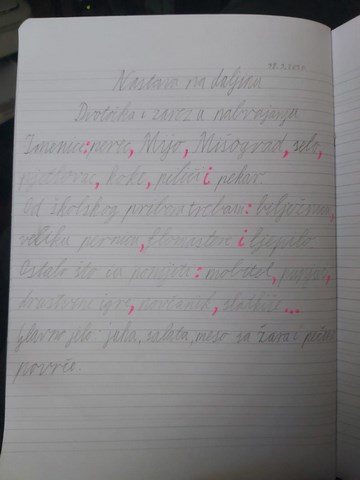 Nastava na daljinu
Dvotočka i zarez u nabrajanju
Imenice: perec, Mijo, Mišograd, selo,
pijetovac, koke, pilići i pekar
Od školskog pribora trebam: bilježnicu,
veliku pernicu, flomastere i ljepilo
Ostalo što va ponijeti: mobitel, papuče,
društvene igre, novčanik, slatkiše...
Glavno jelo: juha, salata, meso sa žara i pečeno
povrće.